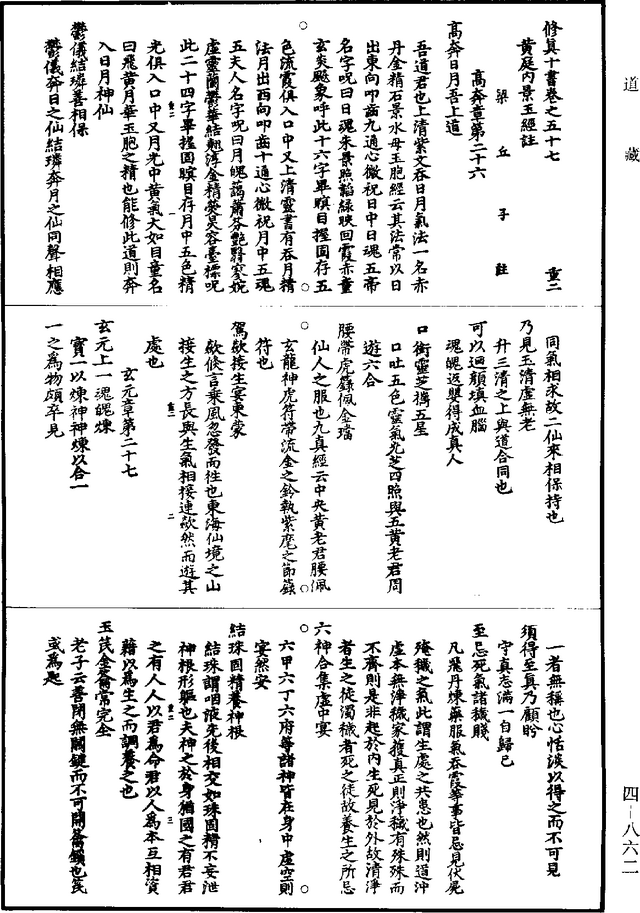 道藏
四－八六二
修真十書卷之五十七　重二
黃庭内景玉經註
梁丘子註
高奔章第二十六
高奔日月吾上道
吾道君也上清紫文吞日月氣法一名赤
丹金精石景水母玉胞經云其法常以日
出東向叩齒九通心微祝日中日魂五帝
名字呪曰日魂朱景照韜綠映回霞赤童
玄炎飈象呼此十六字畢瞑目握固存五
色流霞俱入口中又上清靈書有吞月精
法月出西向叩齒十通心微祝月中五魂
五夫人名字呪曰月魄藹蕭芬艷翳寥婉
虛靈蘭鬱華結翹淳金精瑩炅容臺標呪
此二十四字畢握固瞑目存月中五色精
光俱入口中又月光中黃氣大如目童名
曰飛黃月華玉胞之精也能修此道則奔
入日月神仙
鬱儀結璘善相保
鬱儀奔日之仙結璘奔月之仙同聲相應
同氣相求故二仙來相保持也
乃見玉清虛無老
升三清之上與道合同也
可以迴顏填血腦
魂魄返嬰得成真人
口銜靈芝攜五星
口吐五色靈氣光芝四照與五黃老君周
遊六合
腰帶虎籙佩金璫
仙人之服也九真經云中央黃老君腰佩
玄龍神虎符帶流金之鈴執紫麾之節籙
符也
駕欻接生宴東蒙
欻倏言乘風忽發而往也東海仙境之山
接生之方長與生氣相接連欻然而遊其
處也
玄元章第二十七
玄元上一魂魄煉
寶一以煉神神煉以合一
一之為物頗卒見
一者無稱也心恬淡以得之而不可見
須得至真乃顧眄
守真志滿一自歸己
至忌死氣諸穢賤
凡飛丹煉藥服氣吞霞等事皆忌見伏屍
殗穢之氣此謂生處之共患也然則道沖
虛本無淨穢家複真正則淨穢有殊殊而
不齊則是非起於內生死見於外故清淨
者生之徒濁穢者死之徒故養生之所忌
六神合集虛中宴
六甲六丁六府等諸神皆在身中虛空則
宴然安
結珠固精養神根
結珠謂咽液先後相交如珠固精不妄泄
神根形軀也夫神之於身猶國之有君君
之有人人以君為命君以人為本互相資
藉以為生之而調養之也
玉𥬠金籥常完全
老子云善閉無關鍵而不可開籥鏁也𥬠
或為匙